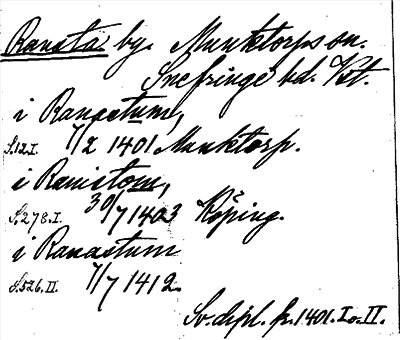 Ransta by. Munktorps sn.
Snefringe hd. Vst.
i Ranastum,
S.12.I. 7/2 1401 Munktorp.
i Ranistom,
S.278.I. 30/7 1403 Köping.
i Ranastum
S.526.II. 7/7 1412.
Sv. dipl. fr. 1401. I o. II.